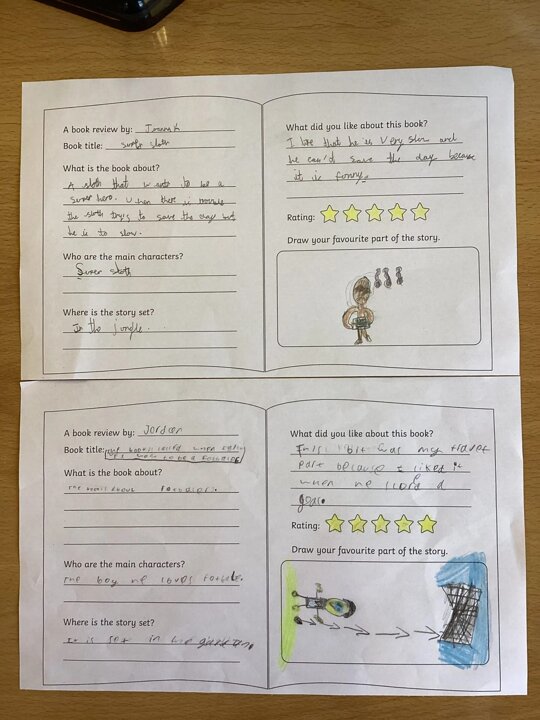 A book review by:
Book title: super sloth
What is the book about?
A sloth that wants to be a
super hero. When there is trouble
the sloth trys to save the day but
he is to slow.
Who are the main characters?
Super sloth
Where is the story set?
In the jungle.
What did you like about this book?
I like that he is very slow and
he can'd save the day because
it is funny.
Rating:
Draw your favourite part of the story.
A book review by: Jordan
Book title: the book is called when
I to be a
What is the book about?
about
Who are the main characters?
the boy he loves
Where is the story set?
It is set in the
What did you like about this book?
this was my
part because I liked it
when he scord a
goal.
Rating:
Draw your favourite part of the story.